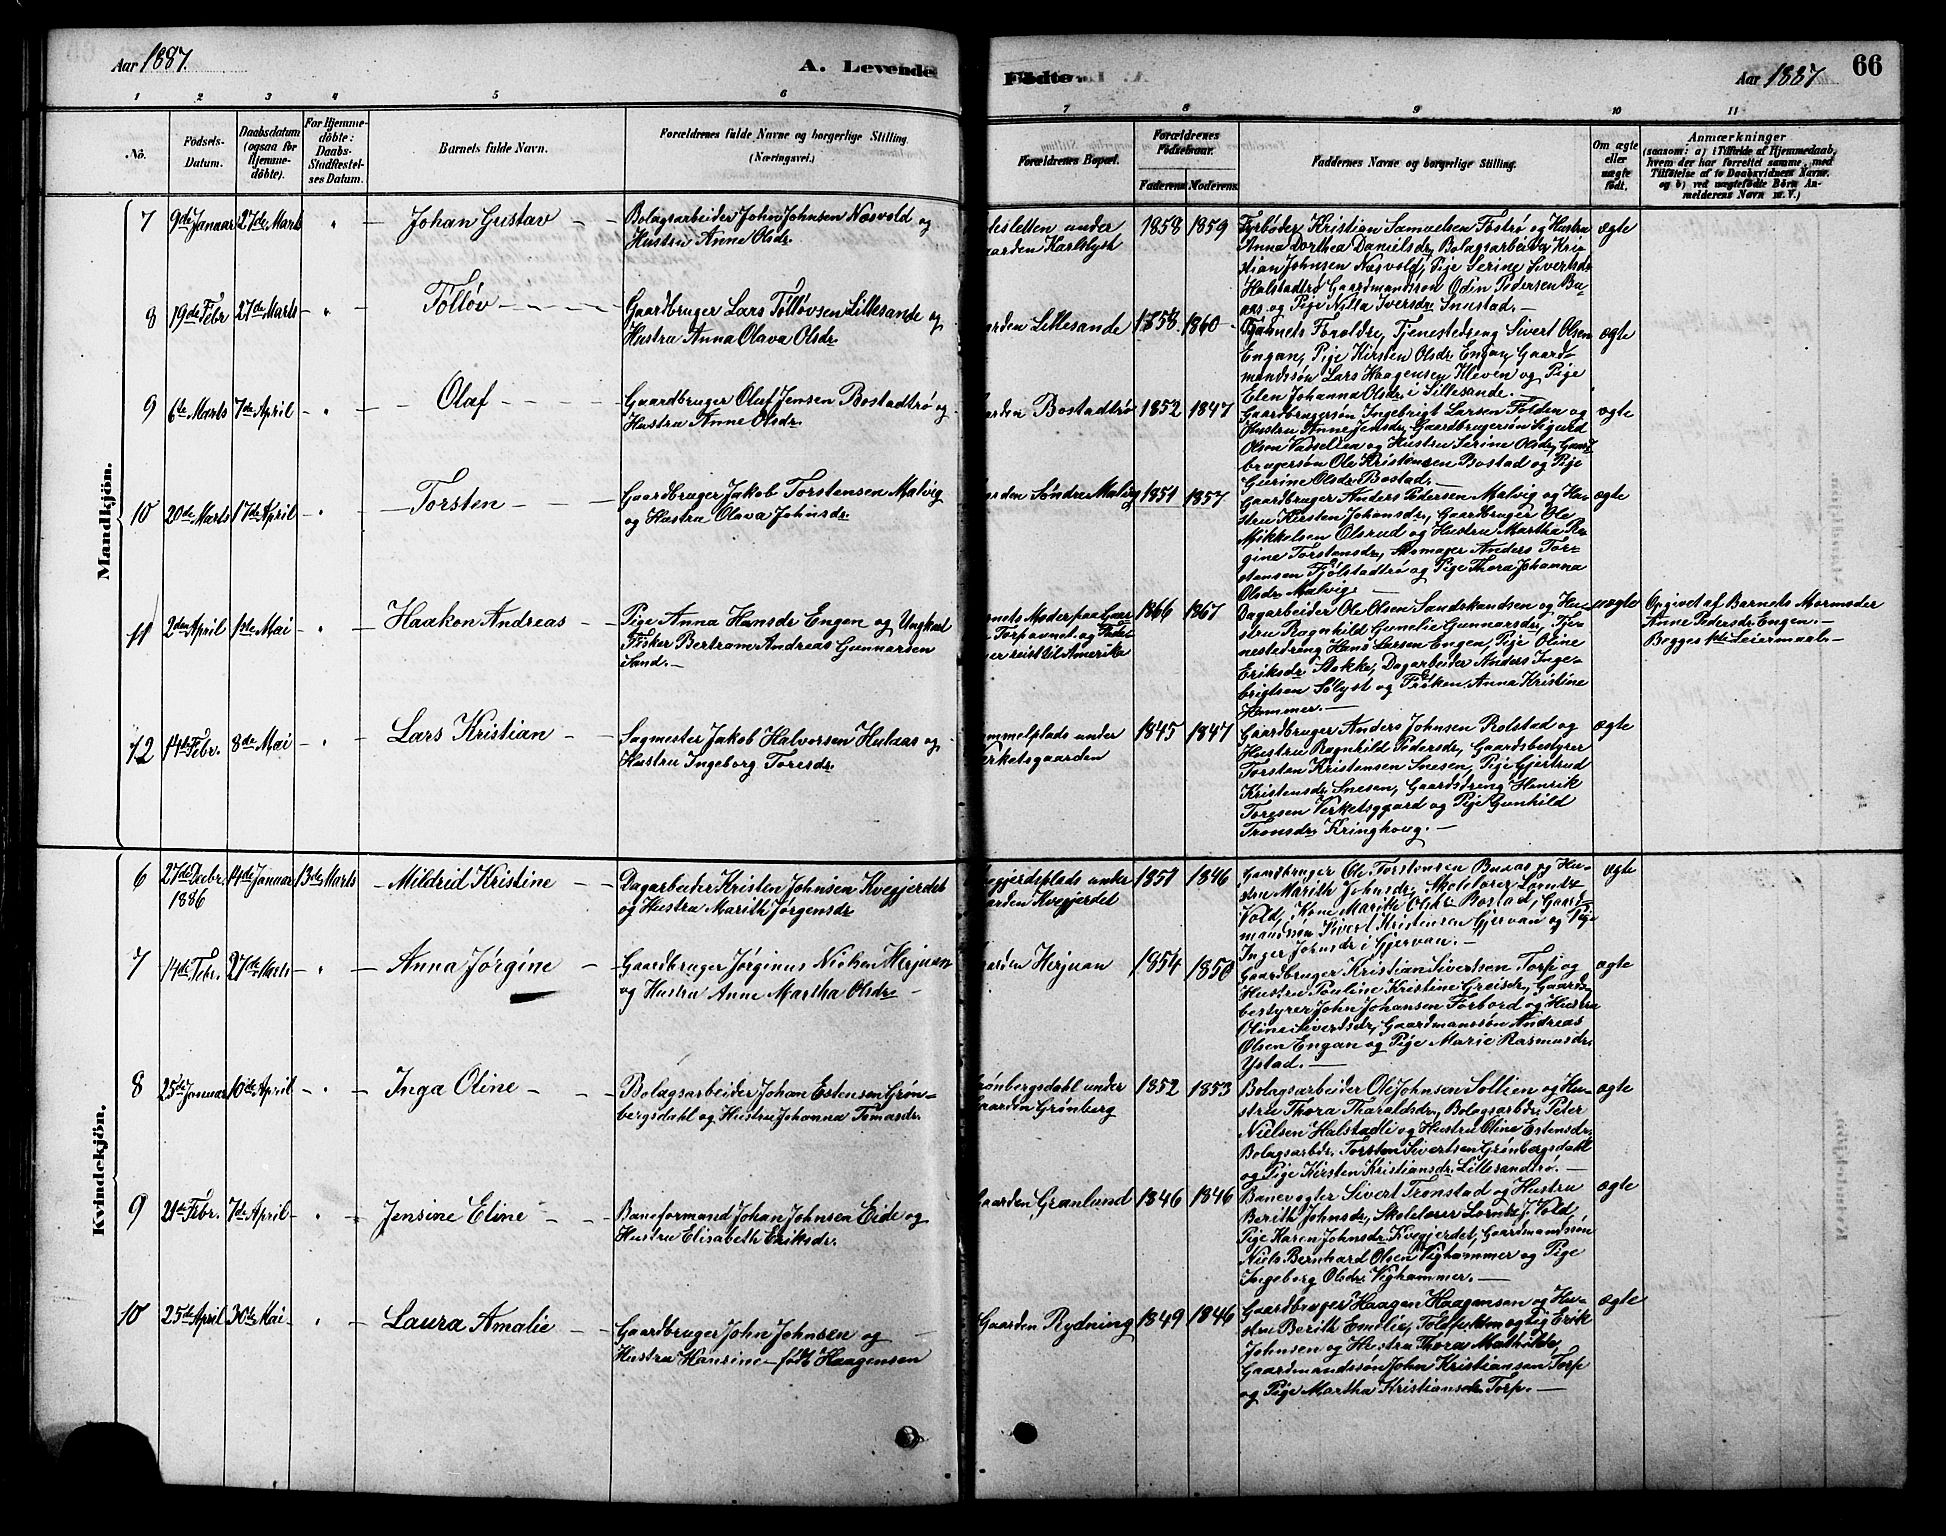 Aar 1887.
A. Levende
Födte.
Aar 1887
66
1 2 3 4 5 6 7 8 9 10 11
No.
Födsels-
Datum.
Daabsdatum
(ogsaa for
Hjemme-
döbte).
For Hjemme-
döbte:
Daabs-
Stadfæstel-
ses Datum.
Barnets fulde Navn.
Forældrenes fulde Navne og borgerlige Stilling
(Næringsvei.)
Forældrenes Bopæl.
Forældrenes
Födselsaar.
Faderens Moderens
Faddernes Navne og borgerlige Stilling.
Om ægte
eller
uægte
født.
Anmærkninger
(saasom: a) i Tilfælde af Hjemmedaab,
hvem der har forrettet samme, med
Tilföielse af to Daabsvidners Navne,
og b) ved uægtefödte Börn An-
melderens Navn m.V.)
Mandkjön.
7 9de Januar 27de Marts " Johan Gustav
Bolagsarbeider John Johnsen Næsvold og
Hustru Anne Olsdr.
sletten under
aarden Karlslyst
1858 1859
Fyrbøder Kristian Samuelsen Tostrø og Hustru
Anna Dorthea Danielsdr, Bolagsarbeider Kri-
stian Johnsen Næsvold, Pige Serine Sivertsdr
Halstadtrø Gaardmandssøn Odin Pedersen Bu-
aas og Pige Nilla Iversdr Snustad.
ægte
8 19de Febr 27de Marts " Tølløv
Gaardbruger Lars Tølløvsen Lillesande og
Hustru Anna Olava Olsdr.
aarden Lillesande
1858. 1860
Barnets Forældre, Tjenestedreng Sivert Olsen
Engan, Pige Kirsten Olsdr Engan, Gaard-
mandssøn Lars Haagensen Kleven og Pige
Elen Johanna Olsdr, i Lillesande.
ægte
9 6te Marts 7de April " Olaf
Gaardbruger Oluf Jensen Bostadtrø og
Hustru Anne Olsdr.
aarden Bostadtrø
1852 1847
Gaardbrugersøn Ingebrigt Larsen Folden og
Hustru Anne Jensdr, Gaardbrugersøn Sigurd
Olsen Vasseljen og Hustru Serine Olsdr, Gaard-
brugersøn Ole Kristensen Bostad og Pige
Gurine Olsdr Bostad.
ægte
10 20de Marts 17de April " Torsten
Gaardbruger Jakob Torstensen Malvig
og Hustru Olava Johnsdr
aarden Søndre Malvig
1851 1857
Gaardbruger Anders Pedersen Malvig og Hu-
stru Kirsten Johansdr, Gaardbruger Ole
Mikkelsen Olsrud og Hustru Martha Re-
gine Torstensdr, Skomager Anders Tor-
stensen Fjølstadtrø og Pige Thora Johanna
Olsdr Malvig.
ægte
11 2den April 1ste Mai " Haakon Andreas
Pige Anna Hansdr Engen og Ungkarl
Fisker Bertram Andreas Gunnarsen
Sand.
arnets Moder paa Gaar-
Torpavnet og Fader
er reist til Amerika
1866 1867
Dagarbeider Ole Olsen Sandskandsen og Hu-
stru Ragnhild Gumelie Gunnarsdr, Tje-
nestedreng Hans Larsen Engen, Pige Oline
Eriksdr Stokke, Dagarbeider Anders Inge-
brigtsen Sølyst og Frøken Anna Kristine
Hommer.
uægte
Opgivet af Barnets Mormoder
Anne Pedersdr Engen.
Begges 1ste Leiermaal.
12 14de Febr. 8de Mai " Lars Kristian
Sagmester Jakob Halvorsen Hulaas og
Hustru Ingeborg Toresdr.
ommelplads under
erketsgaarden
1845 1847
Gaardbruger Anders Johnsen Rolstad og
Hustru Ragnhild Pedersdr, Gaardsbestyrer
Torsten Kristensen Snesen, Pige Gjertrud
Kristensdr Snesen, Gaardsdreng Henrik
Toresen Verketsgaard og Pige Gunhild
Tronsdr Kringhoug.
ægte
Kvindekjön.
6 27de Decbr. 1886 14de Januar 13de Marts Mildrid Kristine
Dagarbeider Kristen Johnsen Kvegjerdet
og Hustru Marith Jørgensdr
egjerdsplads under
aarden Kvegjerdet
1851 1846
Gaardbruger Ole Torstensen Buaas og Hu-
stru Marith Johnsdr, Skolelærer Lorntz
Vold, Kone Marith Olsdr Bostad, Gaard-
mandssøn Sivert Kristensen Gjervan og Pige
Inger Johnsdr i Gjervan.
ægte
7 14de Febr. 27de Marts " Anna Jørgine
Gaardbruger Jørginus Nielsen Herjuan
og Hustru Anne Martha Olsdr
aarden Herjuan
1854 1850
Gaardbruger Kristian Sivertsen Torp og
Hustru Pauline Kristine Greisdr, Gaards-
bestyrer John Johansen Forbord og Hustru
Oline Sivertsdr, Gaardmanssøn Andreas
Olsen Engan og Pige Marie Rasmusdr.
Ystad.
ægte
8 25de Januar 10de April " Inga Oline
Bolagsarbeider Johan Estensen Grøn-
bergsdahl og Hustru Johanna Tomasdr.
rønbergsdahl under
Gaarden Grønberg
1852 1853
Bolagsarbeider Ole Johnsen Sollien og Hu-
stru Thora Tharaldsdr, Bolagsarbdr Peter
Nielsen Halstadli og Hustru Oline Estensdr,
Bolagsarbdr. Torsten Sivertsen Grønbergsdahl
og Pige Kirsten Kristiansdr Lillesandtrø.
ægte
9 21de Febr. 7de April " Jensine Eline
Baneformand Johan Johnsen Eide og
Hustru Elisabeth Eriksdr.
Gaarden Granlund
1846 1846
Banevogter Sivert Tronstad og Hustru
Berith Johnsdr, Skolelærer Lorntz J. Vold,
Pige Karen Johnsdr Kvegjerdet, Gaardmandssøn
Niels Bernhard Olsen Vighammer og Pige
Ingeborg Olsdr Vighammer.
ægte
10 25de April 30te Mai " Laura Amalie
Gaardbruger John Johnsen og
Hustru Hansine født Haagensen
Gaarden Rydning
1849 1846
Gaardbruger Haagen Haagensen og Hu-
stru Berith Emelie, Erik
Johnsen og Hustru Thora Mathilde,
Gaardmandssøn John Kristiansen Torp
og Pige Martha Kristiansdr Torp.
ægte